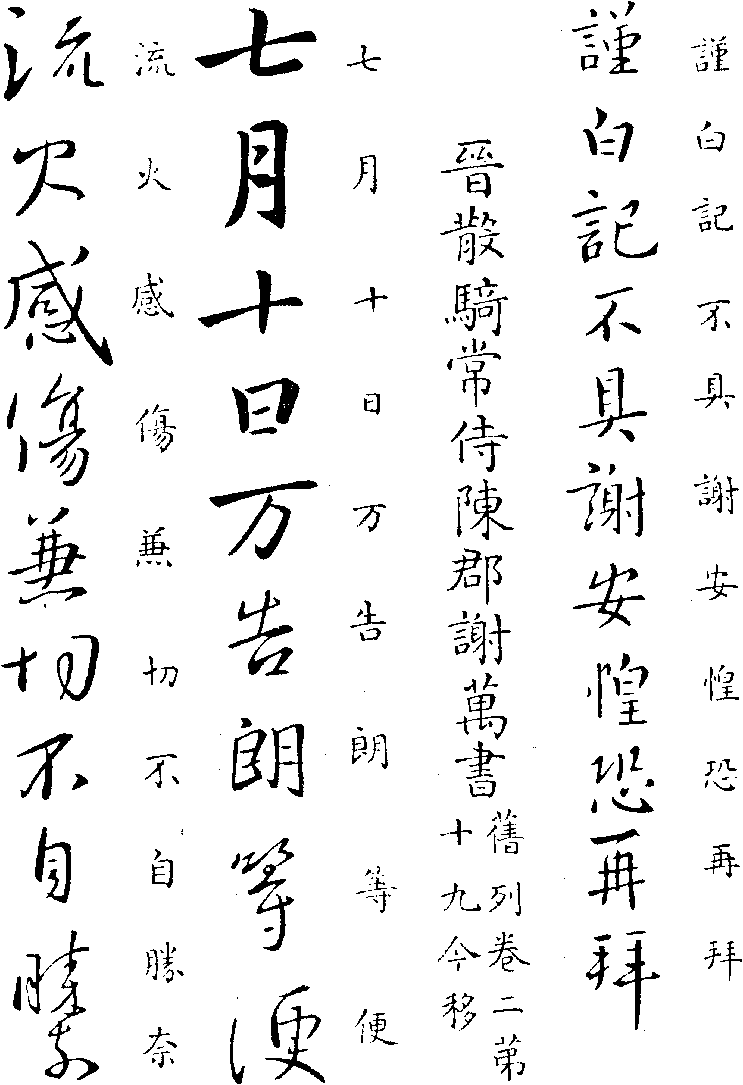 謹白記不具謝安惶恐再拜
謹白記不具謝安惶恐再拜
晉散騎常侍陳郡謝萬書
舊列卷二第
十九今移
七月十日万告朗等便
七月十日万告朗等便
流火感傷兼切不自勝奈
流火感傷兼切不自勝奈